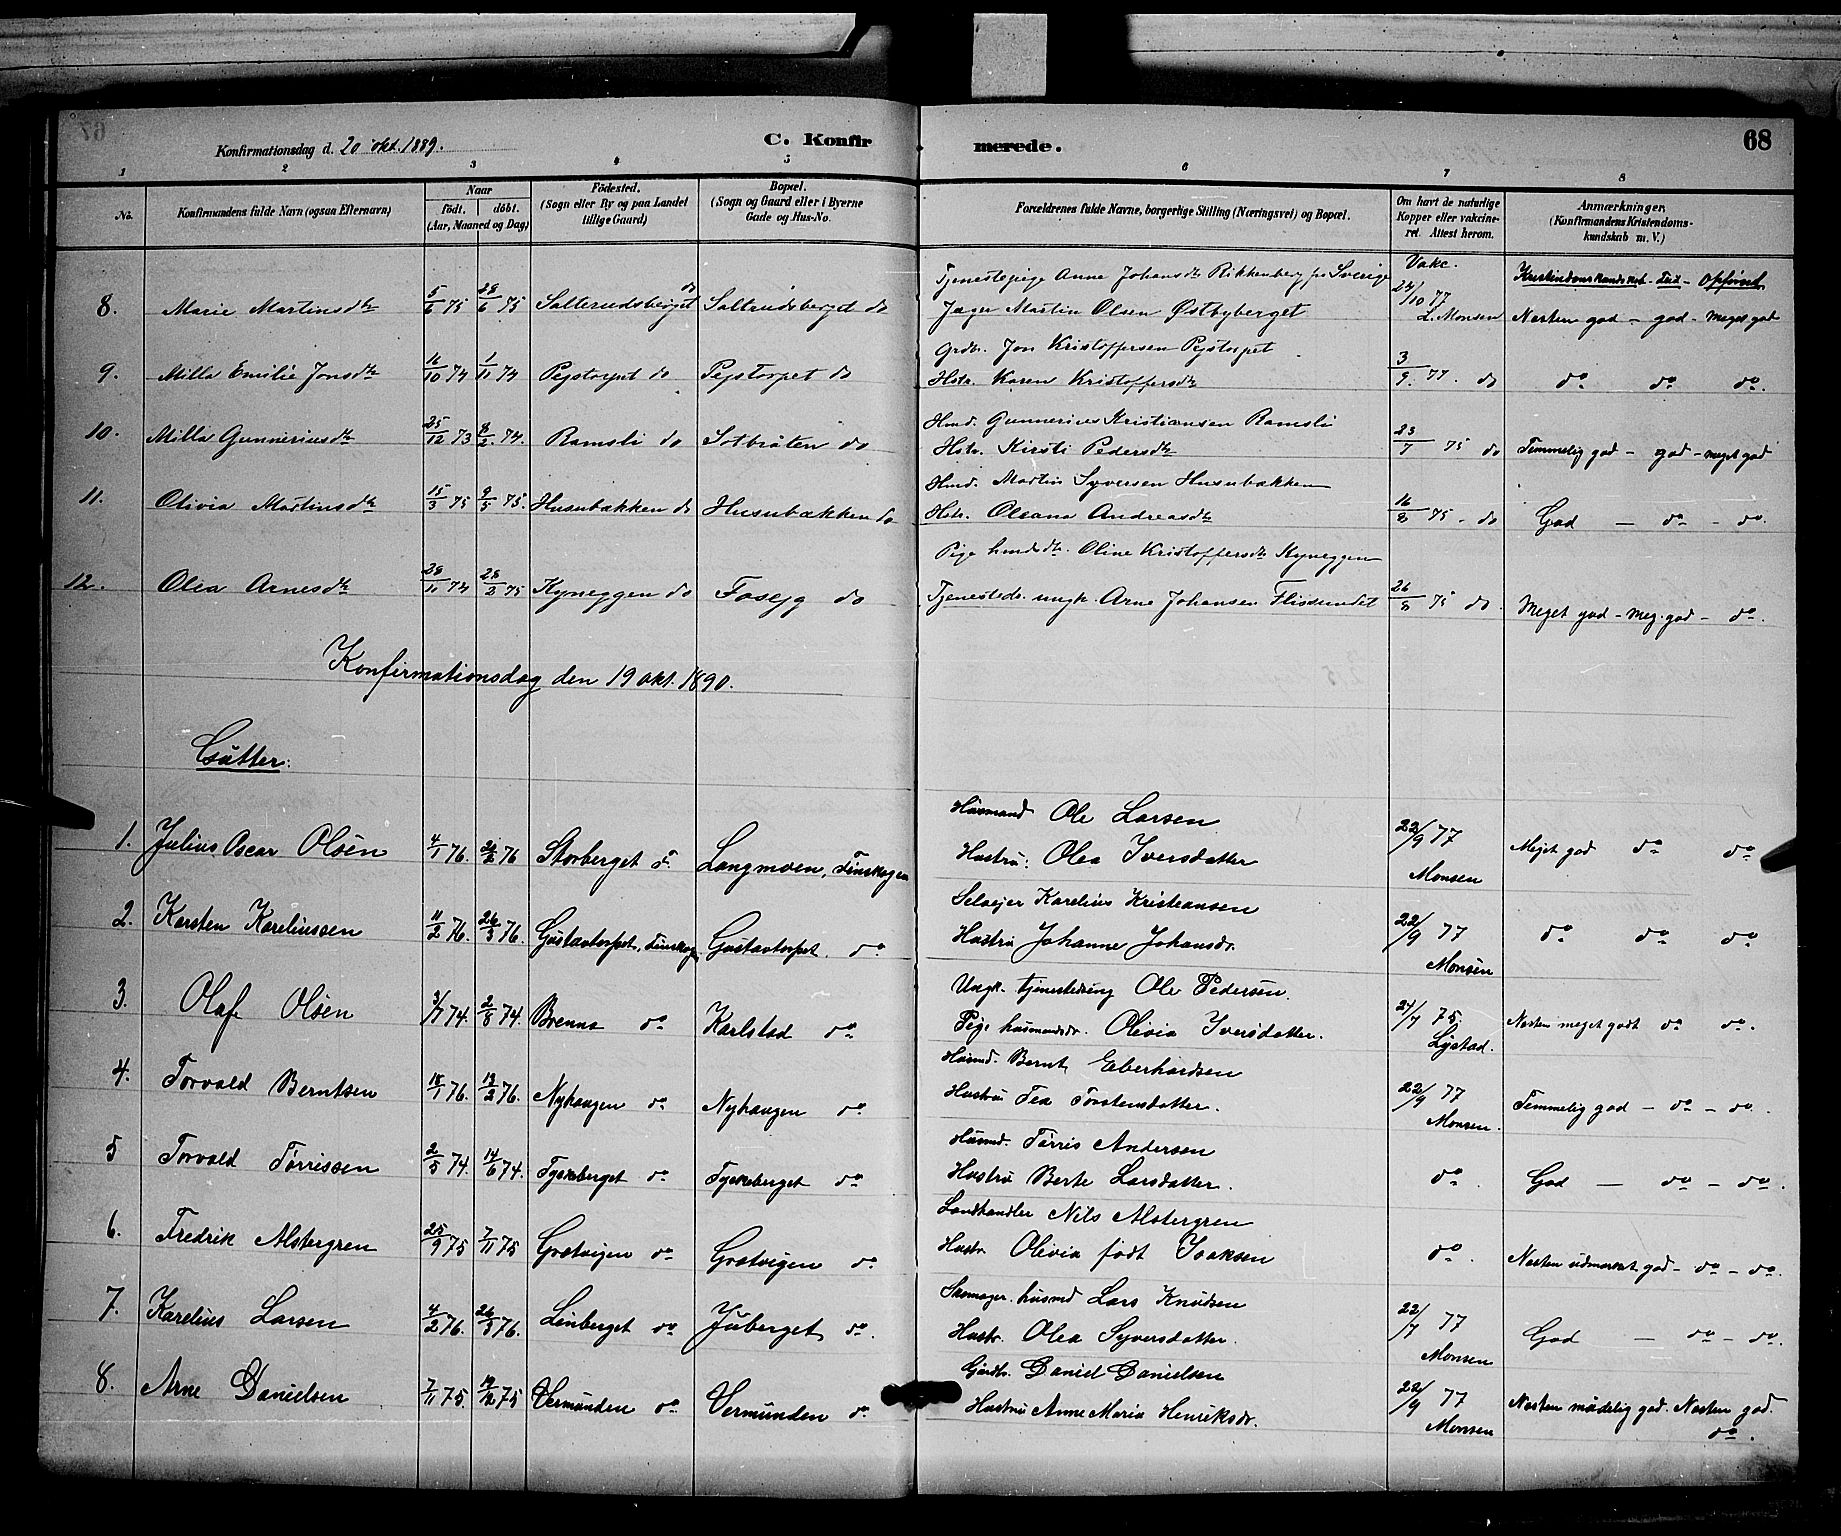 67
Konfirmationsdag d. 20 okt. 1889.
C. Konfirmerede.
68
1 2 3 4 5 6 7 8
No. Konfirmandens fulde Navn (ogsaa Efternavn) Naar født. døbt. (Aar, Maaned og Dag) Fødested. (Sogn eller By og paa Landet tillige Gaard) Bopæl. (Sogn og Gaard eller i Byerne Gade og Hus-No. Forældrenes fulde Navne, borgerlige Stilling (Næringsvei) og Bopæl. Om havt de naturlige Kopper eller vakcineret. Attest herom. Anmærkninger. (Konfirmandens Kristendomskundskab m. V.)
Tjenestepige Anne Johansdr Rikkenberg fra Sverige Vakc. Kristendomskundskab - Flid - Opførsel
8. Marie Martinsdtr 5/6 75 28/6 75 Salterudsberget do Saltrudsberget do Jæger Martin Olsen Østbyberget 24/10 77 L. Monsen Næsten god - god - meget god
Grdbr. Jon Kristoffersen Pejstorpet
9. Milla Emilie Jonsdtr 16/10 74 1/11 74 Pejstorpet do Pejstorpet do Hstr. Karen Kristoffersdtr 3/9 77. do do do do.
Hmd. Gunnerius Kristiansen Ramsli
10. Milla Gunneriusdtr 25/12 73 8/2 74. Ramsli do Sotbråten do Hstr. Kirsti Pedersdtr 23/7 75 do Temmelig god - god - meget god
Hmd. Martin Syversen Husubækken
11. Olivia Martinsdtr 15/3 75 9/5 75. Husubækken do Husubækken do Hstr. Oleana Andreasdtr 16/8 75 - do God - do - do.
Pige hmdsdtr. Oline Kristoffersdtr Kyneggen
12. Olea Arnesdtr 28/11 74 28/2 75 Kyneggen do Fasejg do Tjenestedr. ungk. Arne Johansen Flissundet 26/8 75 do. Meget god - meg. god - do.
Konfirmationsdag den 19 okt. 1890.
Gutter:
Husmand Ole Larsen
1. Julius Oscar Olsen 4/1 76. 24/2 76 Storberget F. Langmoen, Finskogen Hustru: Olea Iversdatter 22/9 77 Monsen Meget god do do
Selvejer Karelius Kristiansen
2. Karsten Kareliussen 11/2 76. 26/3 76. Gustavtorpet, Finskogen Gustavtorpet. do Hustru Johanne Johansdr. 22/9 77 Monsen do do do
Ungk. tjenestedreng Ole Pedersen.
3. Olaf Olsen 3/7 74. 2/8 74. Brenna do Karlstad do Pige husmandsdr. Olivia Iversdatter. 24/7 75 Lystad. Næsten meget godt do do.
Husmd. Bernt Eberhardsen
4. Torvald Berntsen 18/1 76. 13/2 76. Nyhaugen do Nyhaugen do Hustru Tea Torstensdatter. 22/9 77 Monsen. Temmelig god - do - do.
Husmd. Tørris Andersen
5 Torvald Tørrissen 2/5 74. 14/6 74. Tyskeberget do Tyskeberget do Hustru Berte Larsdatter. do. God - do - do.
Landhandler Nils Alstergren
6. Fredrik Alstergren 25/9 75 7/11 75 Grøtvigen do Grøtvigen do Hustr. Olivia født Isaksen do. Næsten udmærket god - do - do.
Skomager. husmd Lars Knudsen
7. Karelius Larsen 4/2 76. 26/3 76. Linberget do Juberget do. Hustr. Olea Syversdatter. 22/7 77 Monsen God - do - do.
Gårdbr. Daniel Danielsen
8. Arne Danielsen 7/11 75. 19/12 75 Vermunden do Vermunden do Hustru Anne Marie Henriksdr. 22/9 77 Monsen Næsten mådelig god. Næsten god. do.